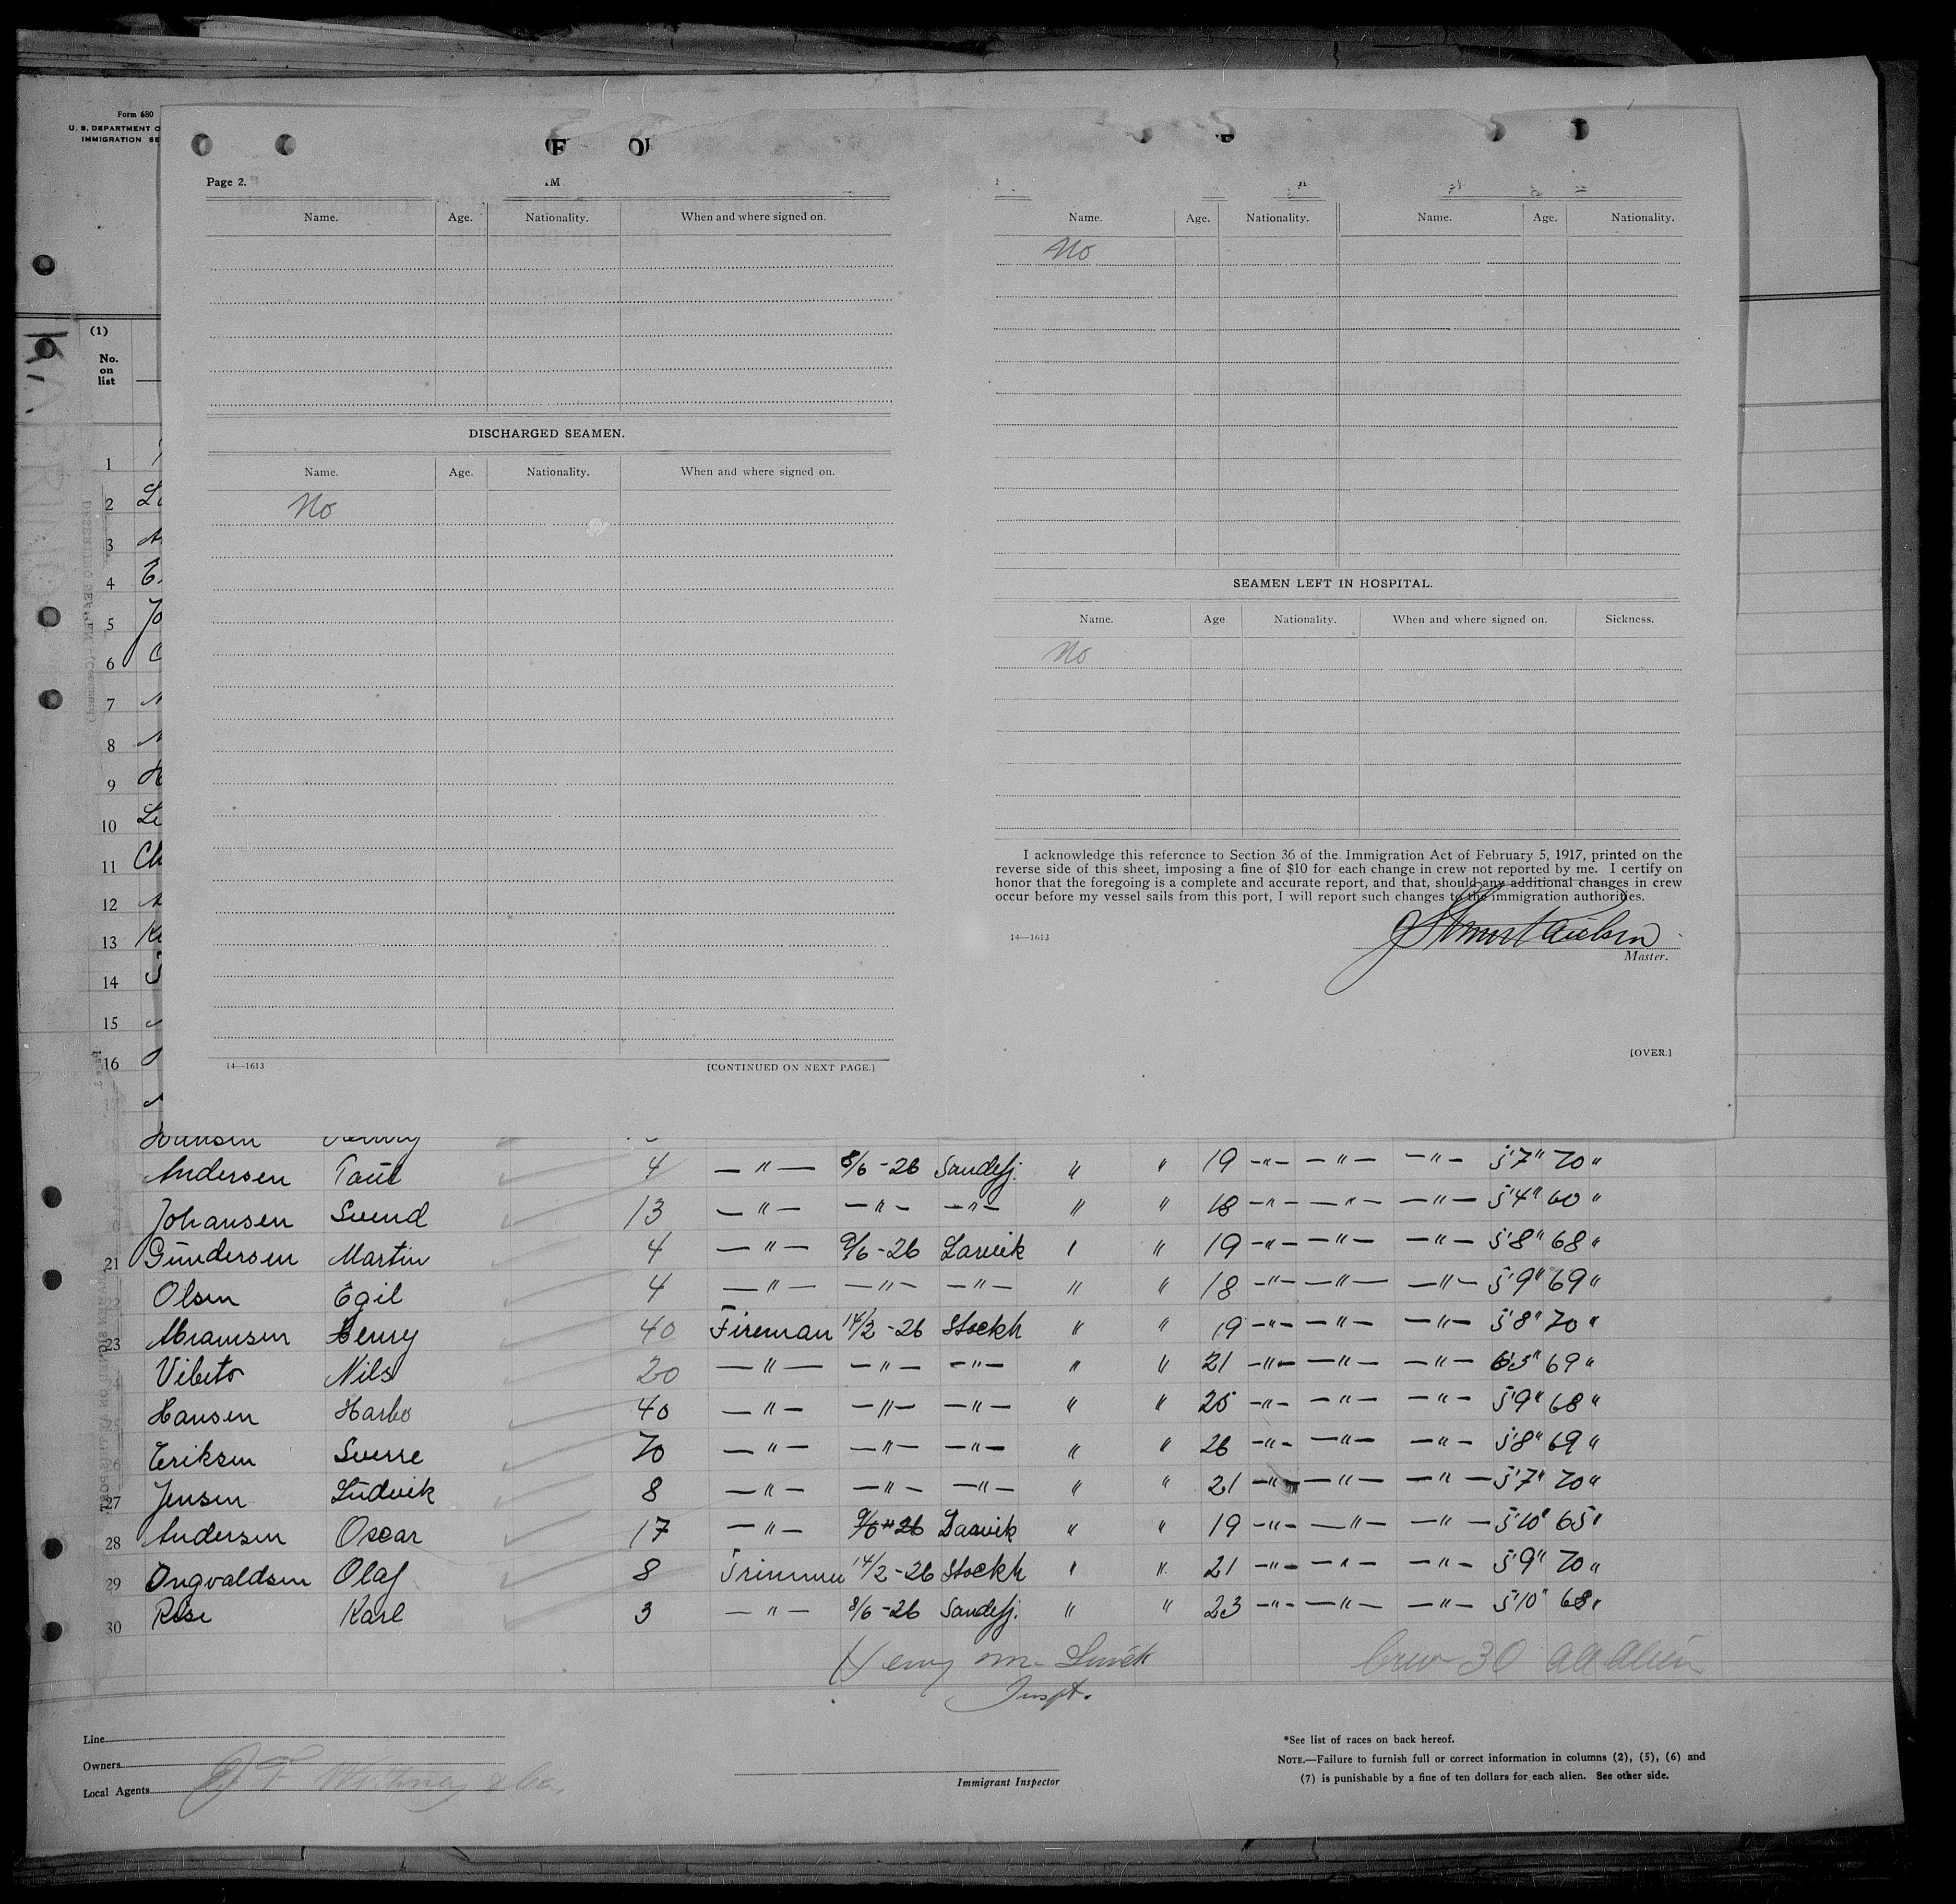 Form 680
U. S. DEPARTMENT O
IMMIGRATION SE
(1)
No.
on
list
Page 2.
Name. Age. Nationality. When and where signed on.
DISCHARGED SEAMEN.
Name. Age. Nationality. When and where signed on.
No
14—1613 [CONTINUED ON NEXT PAGE.]
Name. Age. Nationality. Name. Age. Nationality.
No
SEAMEN LEFT IN HOSPITAL.
Name. Age Nationality. When and where signed on. Sickness.
No
I acknowledge this reference to Section 36 of the Immigration Act of February 5, 1917, printed on the
reverse side of this sheet, imposing a fine of $10 for each change in crew not reported by me. I certify on
honor that the foregoing is a complete and accurate report, and that, should any additional changes in crew
occur before my vessel sails from this port, I will report such changes to the immigration authorities.
14—1613
Master.
[OVER.]
1
2
3
4
5
6
7
8
9
10
11
12
13
14
15
16
Andersen 4 — " — 8/6 - 26 Sandefj. " " 19 -"- — " — — " — 5'7" 70 "
Johansen Svend 13 — " — — " — — " — " " 18 -"- — " — — " — 5'4" 60 "
21 Gundersen Martin 4 — " — 9/6 - 26 Larvik " " 19 -"- — " — — " — 5'8" 68 "
Olsen Egil 4 — " — — " — — " — " " 18 -"- — " — — " — 5'9" 69 "
23 Abramsen Henry 40 Fireman 14/2 - 26 Stockh " " 19 -"- — " — — " — 5'8" 70 "
Vibeto Nils 20 — " — — " — — " — " " 21 -"- — " — — " — 69 "
Hansen Harbo 40 — " — — " — — " — " " 25 -"- — " — — " — 5'9" 68 "
Eriksen Sverre 70 — " — — " — — " — " " 26 -"- — " — — " — 5'8" 69 "
27 Jensen Ludvik 8 — " — — " — — " — " " 21 -"- — " — — " — 5'7" 70 "
28 Andersen Oscar 17 — " — 9/6 " 26 Larvik " " 19 -"- — " — — " — 5'10" 65 "
29 Ingvaldsen Olaf 8 Trimmer 14/2 - 26 Stockh " " 21 -"- — " — — " — 5'9" 70 "
30 Karl 3 — " — 8/6 - 26 Sandefj. " " 23 -"- — " — — " — 5'10" 68 "
Henry M. Crew 30 all alien
Inspt.
Line
Owners
Local Agents J F Whitney & Co.
Immigrant Inspector
*See list of races on back hereof.
NOTE.—Failure to furnish full or correct information in columns (2), (5), (6) and
(7) is punishable by a fine of ten dollars for each alien. See other side.